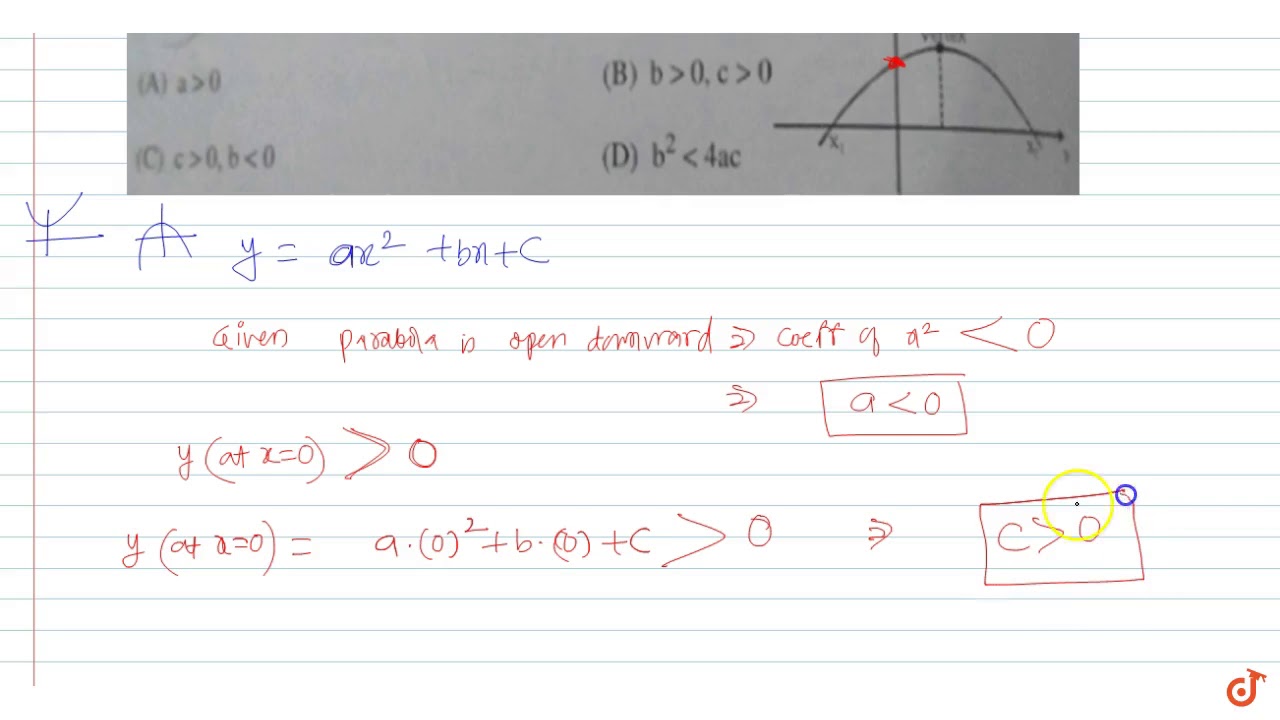 (A) a > 0
(B) b > 0, c > 0
(C) c > 0, b < 0
(D) b² < 4ac
x₁
y = ax² + bx + C
Given parabola is open downward ⇒ coeff of x² < 0
⇒ a < 0
y (at x=0) > 0
y (at x=0) = a·(0)² + b·(0) + C > 0 ⇒ C > 0